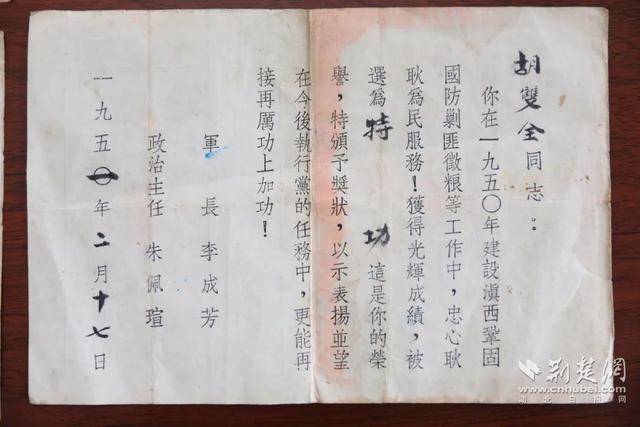 胡雙全同志：
你在一九五〇年建設滇西鞏固
國防剿匪徵粮等工作中，忠心耿
耿為民服務！獲得光輝成績，被
選為特 功 這是你的榮
譽，特頒予獎狀，以示表揚並望
在今後執行黨的任務中，更能再
接再厲功上加功！
軍 長 李成芳
政治主任 朱佩瑄
一九五〇年二月十七日
荆楚網
www.cnhubei.com
湖北日报网